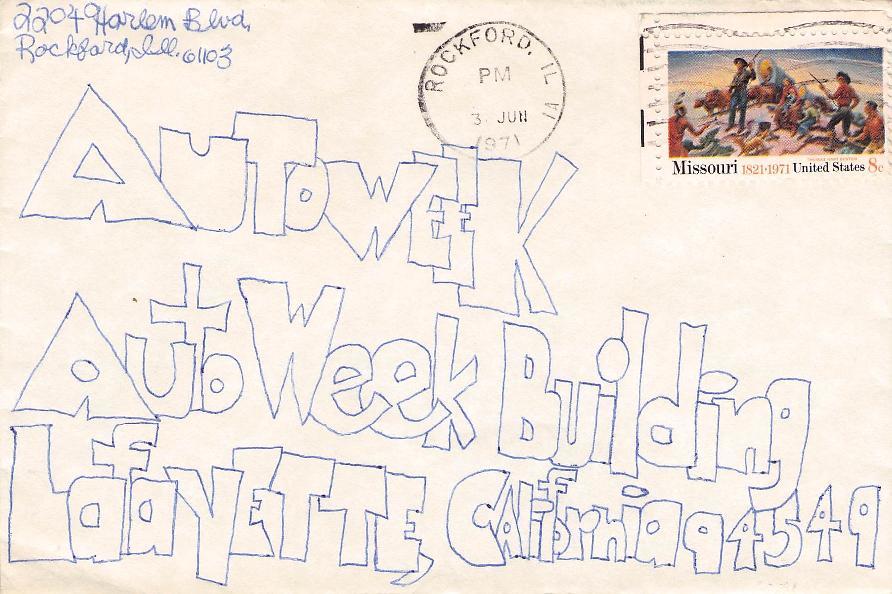 22049 Harlem Blvd,
Rockford, Ill. 61103
ROCKFORD, IL
PM
3 JUN
1971
THOMAS HART BENTON
Missouri 1821·1971 United States 8c
AUToWEEK
AutoWeek Building
LafaYETTE, CALifornia 94549